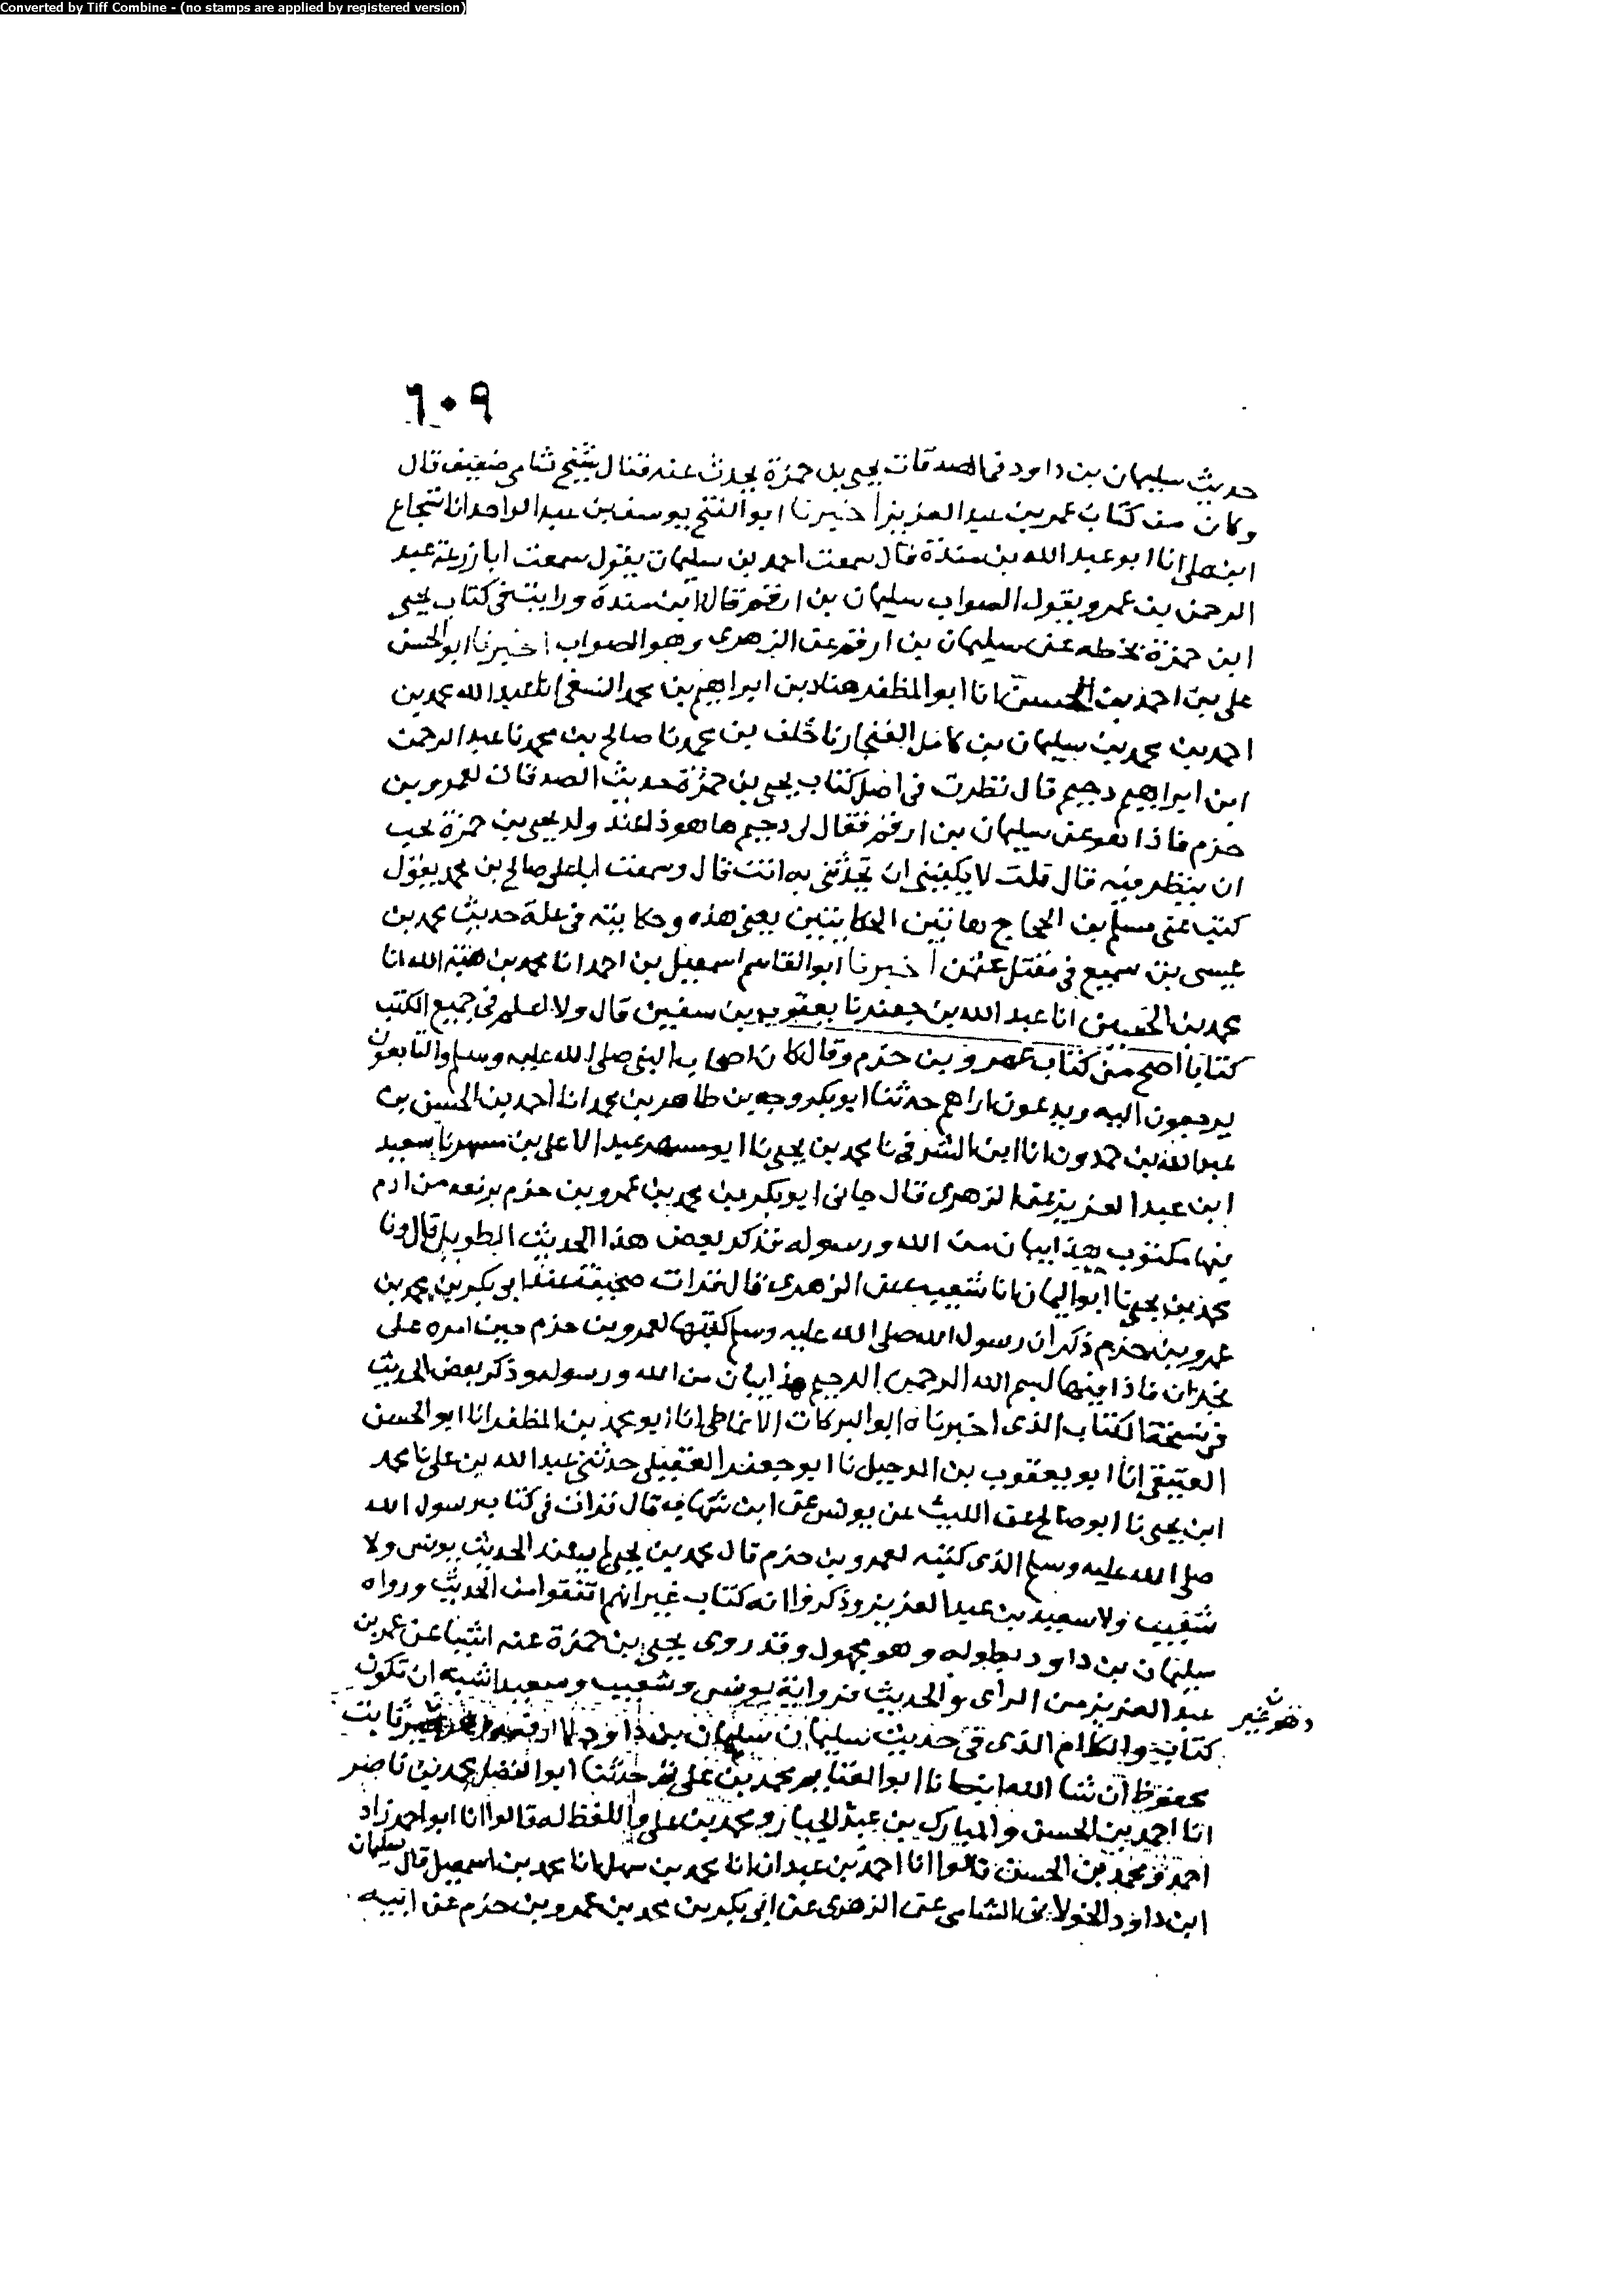 Converted by Tiff Combine - (no stamps are applied by registered version)
٦٠٩
حديث سليمان بن داود في الصدقات يحيى بن حمزة يحدث عنه فقال شيخ شامي ضعيف قال
وكان من كتاب عمر بن عبد العزيز اخبرنا ابو الفتح يوسف بن عبد الواحد انا شجاع
ابن علي انا ابو عبد الله بن مندة قال سمعت احمد بن سليمان يقول سمعت ابا زرعة عبد
الرحمن بن عمرو يقول الصواب سليمان بن ارقم قال ابن مندة ورايت في كتاب يحيى
ابن حمزة بخطه عن سليمان بن ارقم عن الزهري وهو الصواب اخبرنا ابو الحسن
علي بن احمد بن الحسن انا ابو المظفر هناد بن ابراهيم بن محمد النسفي انا عبد الله محمد بن
احمد بن محمد بن سليمان بن كامل الغنجار نا خلف بن محمد نا صالح بن محمد نا عبد الرحمن
ابن ابراهيم دحيم قال نظرت في اصل كتاب يحيى بن حمزة حديث الصدقات لعمرو بن
حزم فاذا هو عن سليمان بن ارقم فقال لي دحيم ها هوذا عند ولد يحيى بن حمزة تحب
ان ينظر فيه قال قلت لا يكفيني ان تحدثني به انت قال وسمعت ابا علي صالح بن محمد يقول
كتب عني مسلم بن الحجاج هاتين الحكايتين يعني هذه وحكايته في علة حديث محمد بن
عيسى بن سميع في مقتل عثمن اخبرنا ابو القاسم اسمعيل بن احمد انا محمد بن هبة الله انا
محمد بن الحسين انا عبد الله بن جعفر نا يعقوب بن سفين قال ولا اعلم في جميع الكتب
كتابا اصح من كتاب عمرو بن حزم وقال كان اصحاب النبي صلى الله عليه وسلم والتابعون
يرجعون اليه ويدعون اراهم حدثنا ابو بكر وجيه بن طاهر بن محمد انا احمد بن الحسن بن
عبد الله بن حمدون انا ابن الشرقي نا محمد بن يحيى نا ابو مسهر عبد الاعلى بن مسهر نا سعيد
ابن عبد العزيز عن الزهري قال جاني ابو بكر بن محمد بن عمرو بن حزم برقعة من ادم
فيها مكتوب هذا بيان من الله ورسوله فذكر بعض هذا الحديث الطويل قال ونا
محمد بن يحيى نا ابو اليمان انا شعيب عن الزهري قال قرات صحيفة عند ابو بكر بن محمد بن
عمرو بن حزم ذكر ان رسول الله صلى الله عليه وسلم كتبها لعمرو بن حزم حين امره على
نجران فاذا فيها بسم الله الرحمن الرحيم هذا بيان من الله ورسوله وذكر بعض الحديث
في نسخة الكتاب الذي اخبرناه ابو البركات الانماطي انا ابو محمد بن المظفر انا ابو الحسن
العتيقي انا ابو يعقوب بن الدخيل نا ابو جعفر العقيلي حدثني عبد الله بن علي نا محمد
ابن يحيى نا ابو صالح عن الليث عن يونس عن ابن شهاب قال قرات في كتاب رسول الله
صلى الله عليه وسلم الذي كتبه لعمرو بن حزم قال محمد بن يحيى لم يسند الحديث يونس ولا
شعيب ولا سعيد بن عبد العزيز وذكروا انه كتاب غير انهم اتفقوا من الحديث ورواه
سليمان بن داود بطوله وهو مجهول وقد روى يحيى بن حمزة عنه اشيا عن عمر بن
عبد العزيز من الراي والحديث فرواية يونس وشعيب وسعيد اشبه ان تكون
كتابة والكلام الذي في حديث سليمان سليمان بن داود لا ارقم ثابت
وهو غير
محفوظ ان شا الله انبانا ابو الغنايم محمد بن علي ثم حدثنا ابو الفضل محمد بن ناصر
انا احمد بن الحسن والمبارك بن عبد الجبار ومحمد بن علي واللفظ له قالوا انا ابو احمد زاد
احمد ومحمد بن الحسن قالوا انا احمد بن عبدان انا محمد بن سهل انا محمد بن اسمعيل قال سليمان
ابن داود الخولاني الشامي عن الزهري عن ابي بكر بن محمد بن عمرو بن حزم عن ابيه